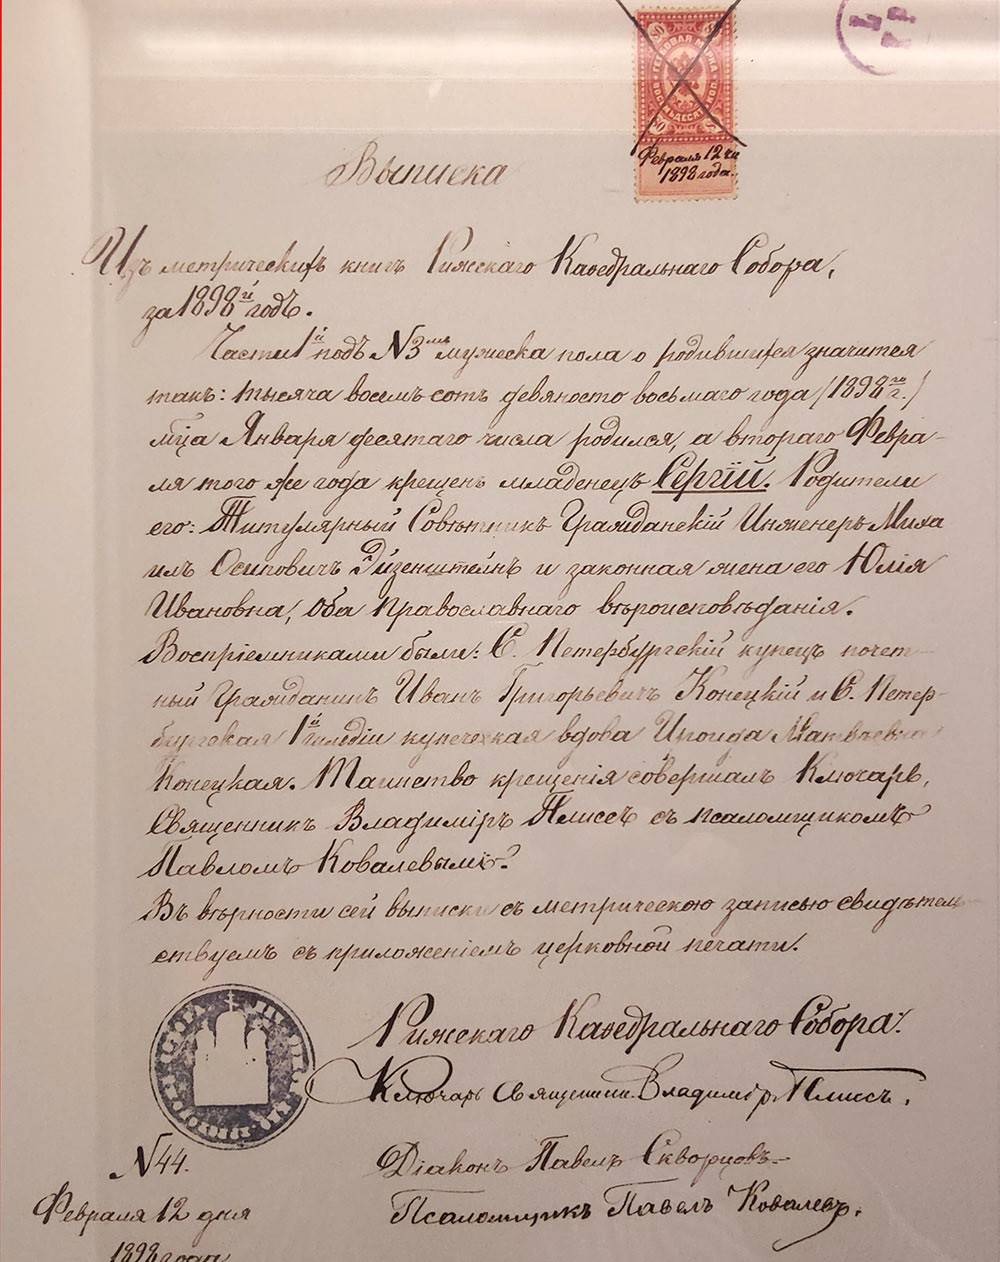 80
ГЕРБОВАЯ МАРКА
ВОСЕМЬДЕСЯТЪ КОП.
Февраля 12 дня
1898 года.
Выписка
Изъ метрическихъ книгъ Рижскаго Каѳедральнаго Собора,
за 1898й годъ.
Части 1й подъ №3мъ мужеска пола о родившихся значится
такъ: тысяча восемьсотъ девяносто восьмаго года /1898го г./
мца Января десятаго числа родился, а втораго Февра-
ля того же года крещенъ младенецъ Сергій. Родители
его: Титулярный Совѣтникъ Гражданскій Инженеръ Миха
илъ Осиповичъ Эйзенштейнъ и законная жена его Юлія
Ивановна, оба православнаго вѣроисповѣданія.
Воспріемниками были: С. Петербургскій купецъ почет-
ный Гражданинъ Иванъ Григорьевичъ Конецкій и С. Петер-
бургская 1й гильдіи купеческая вдова Ираида Матвѣевна
Конецкая. Таинство крещенія совершалъ Ключарь,
Священникъ Владиміръ Плиссъ съ псаломщикомъ
Павломъ Ковалевымъ.
Въ вѣрности сей выписки съ метрическою записью свидѣтель-
ствуемъ съ приложеніемъ церковной печати.
Рижскаго Каѳедральнаго Собора:
Ключарь Священникъ Владиміръ Плиссъ.
Діаконъ Павелъ Скворцовъ
Псаломщикъ Павелъ Ковалевъ.
№44.
Февраля 12 дня
1898 года